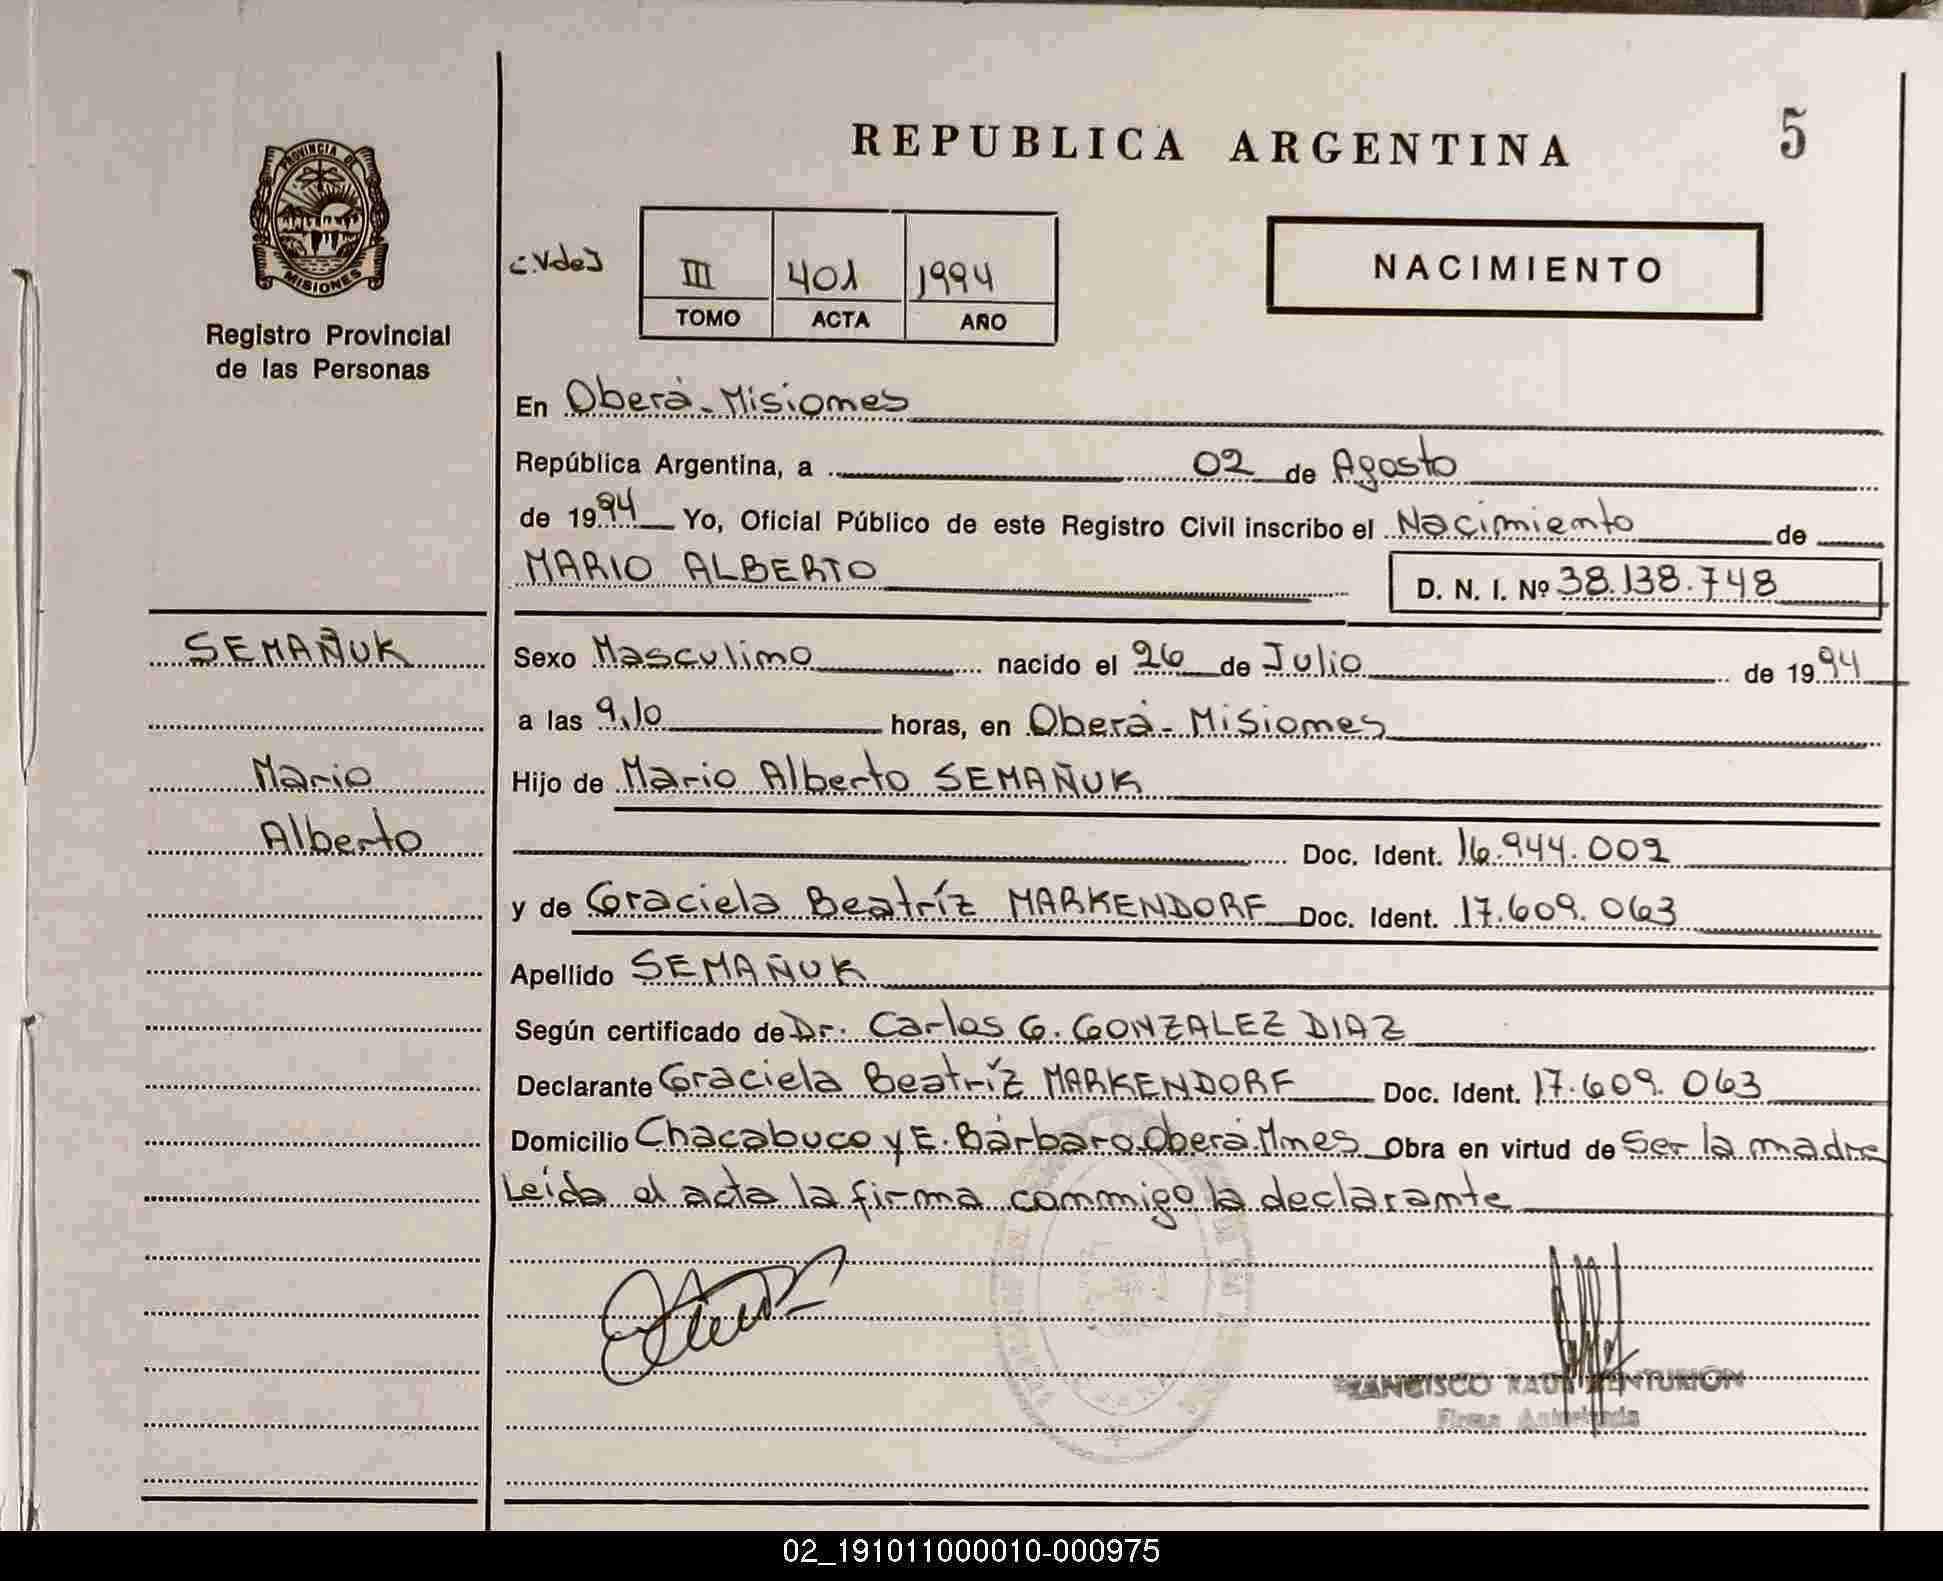 REPUBLICA ARGENTINA
5
PROVINCIA DE
MISIONES
Registro Provincial
de las Personas
III 401 1994
TOMO ACTA AÑO
NACIMIENTO
En Oberá-Misiones
República Argentina, a 02 de Agosto
de 1994 Yo, Oficial Público de este Registro Civil inscribo el Nacimiento de
MARIO ALBERTO D. N. I. Nº 38.138.748
SEMAÑUK
Mario
Alberto
Sexo Masculino nacido el 26 de Julio de 1994
a las 9,10 horas, en Oberá-Misiones
Hijo de Mario Alberto SEMAÑUK
Doc. Ident. 16.944.002
y de Graciela Beatríz MARKENDORF Doc. Ident. 17.609.063
Apellido SEMAÑUK
Según certificado de Dr. Carlos G. GONZALEZ DIAZ
Declarante Graciela Beatríz MARKENDORF Doc. Ident. 17.609.063
Domicilio Chacabuco y E. Bárbaro.Oberá.Mnes Obra en virtud de Ser la madre
Leída el acta la firma conmigo la declarante
FRANCISCO RAUL CENTURION
Firma Autorizada
02_191011000010-000975